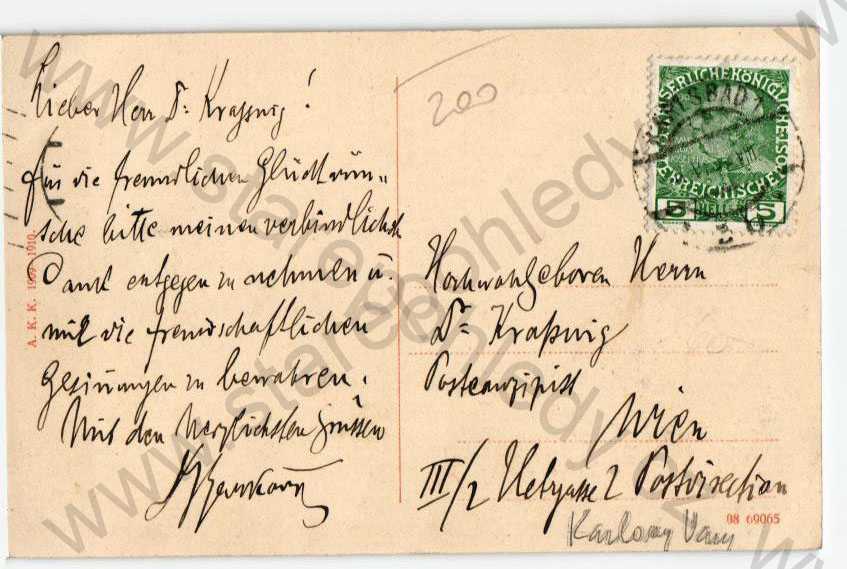 Lieber Herr Dr. Kraßnig!
für die freundlichen Glückwün=
sche bitte meinen verbindlichst
Dank entgegen zu nehmen u.
mir die freundschaftlichen
Gesinnungen zu bewahren.
Mit den herzlichsten Grüssen
200
KAISERLICHE KÖNIGLICHE
ÖSTERREICHISCHE POST
5 5
KARLSBAD 1
VIII
Hochwohlgeboren Herrn
Dr. Kraßnig
Postconzipist
Wien
III/2 Postdirection
A. K. K. 1909-1910.
08 69065
Karlovy Vary
www.starepohledy.cz
www.starepohledy.cz